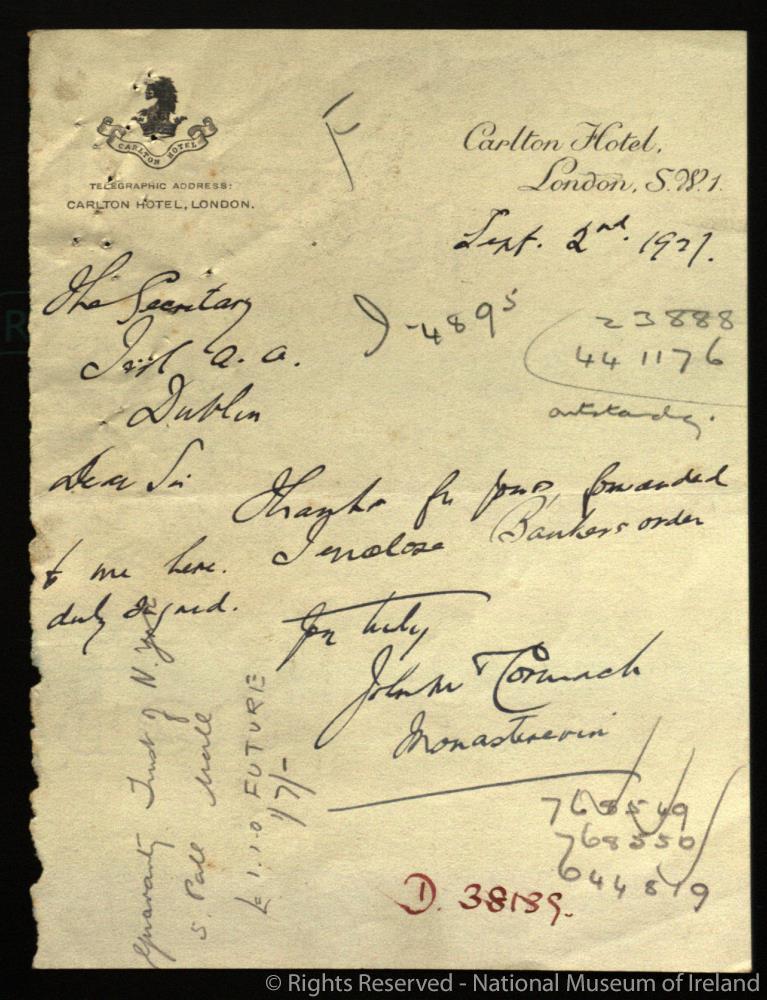 CARLTON HOTEL
TELEGRAPHIC ADDRESS:
CARLTON HOTEL, LONDON.
Carlton Hotel,
London, S.W.1.
Sept. 2nd. 1927.
The Secretary
Irish A. A.
Dublin
4895
23888
441176
outstanding.
Dear Sir
Thanks for yours, forwarded
to me here. I enclose Bankers order
duly signed.
Yrs truly
John McCormack
Monasterevin
Guaranty Trust of N. York
5. Pall Mall
£1.1.0 FUTURE
17/-
768549
768550
644819
D. 38139.
© Rights Reserved - National Museum of Ireland